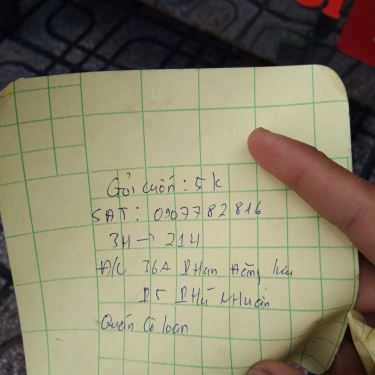 Gỏi cuốn: 5k
SĐT: 0907782816
3H → 21H
Đ/C 36A Phan Đăng Lưu
P5 Phú Nhuận
Quán Cô loan